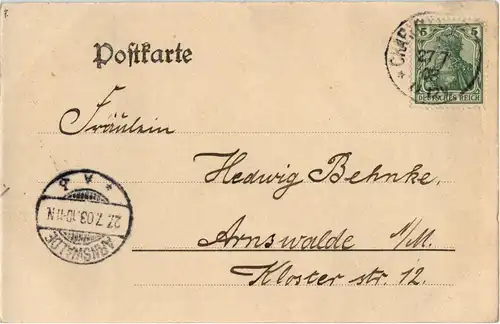 Postkarte
5 5
DEUTSCHES REICH
27/7
03
Fräulein
Hedwig Behnke,
Arnswalde N/M.
Kloster str. 12.
ARNSWALDE
27.7.03.10-11N.
* A